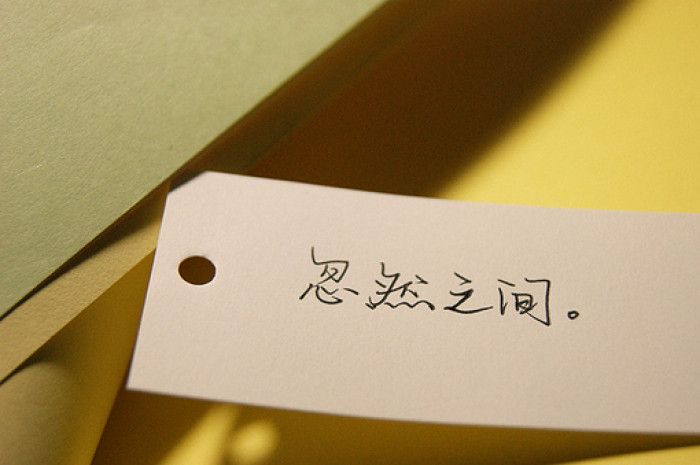 忽然之间。